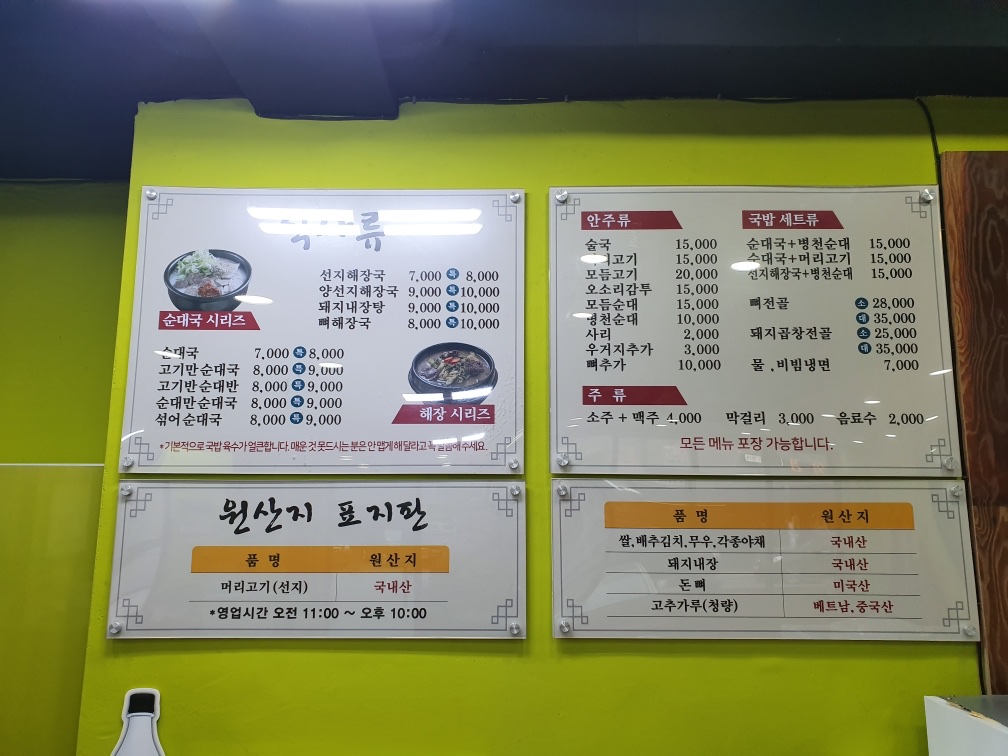 류
선지해장국 7,000 특 8,000
양선지해장국 9,000 특 10,000
돼지내장탕 9,000 특 10,000
뼈해장국 8,000 특 10,000
순대국 시리즈
순대국 7,000 특 8,000
고기만순대국 8,000 특 9,000
고기반순대반 8,000 특 9,000
순대만순대국 8,000 특 9,000
섞어순대국 8,000 특 9,000
해장 시리즈
*기본적으로 국밥 육수가 얼큰합니다. 매운 것 못드시는 분은 안 맵게 해 달라고 꼭 말씀해 주세요.
안주류
술국 15,000
머리고기 15,000
모듬고기 20,000
오소리감투 15,000
모듬순대 15,000
병천순대 10,000
사리 2,000
우거지추가 3,000
뼈추가 10,000
국밥 세트류
순대국+병천순대 15,000
순대국+머리고기 15,000
선지해장국+병천순대 15,000
뼈전골 소 28,000
대 35,000
돼지곱창전골 소 25,000
대 35,000
물,비빔냉면 7,000
주 류
소주 + 맥주 4,000 막걸리 3,000 음료수 2,000
모든 메뉴 포장 가능합니다.
원산지 표지판
품 명 원 산 지
머리고기(선지) 국내산
*영업시간 오전 11:00 ~ 오후 10:00
품 명 원 산 지
쌀,배추김치,무우,각종야채 국내산
돼지내장 국내산
돈 뼈 미국산
고추가루(청량) 베트남,중국산